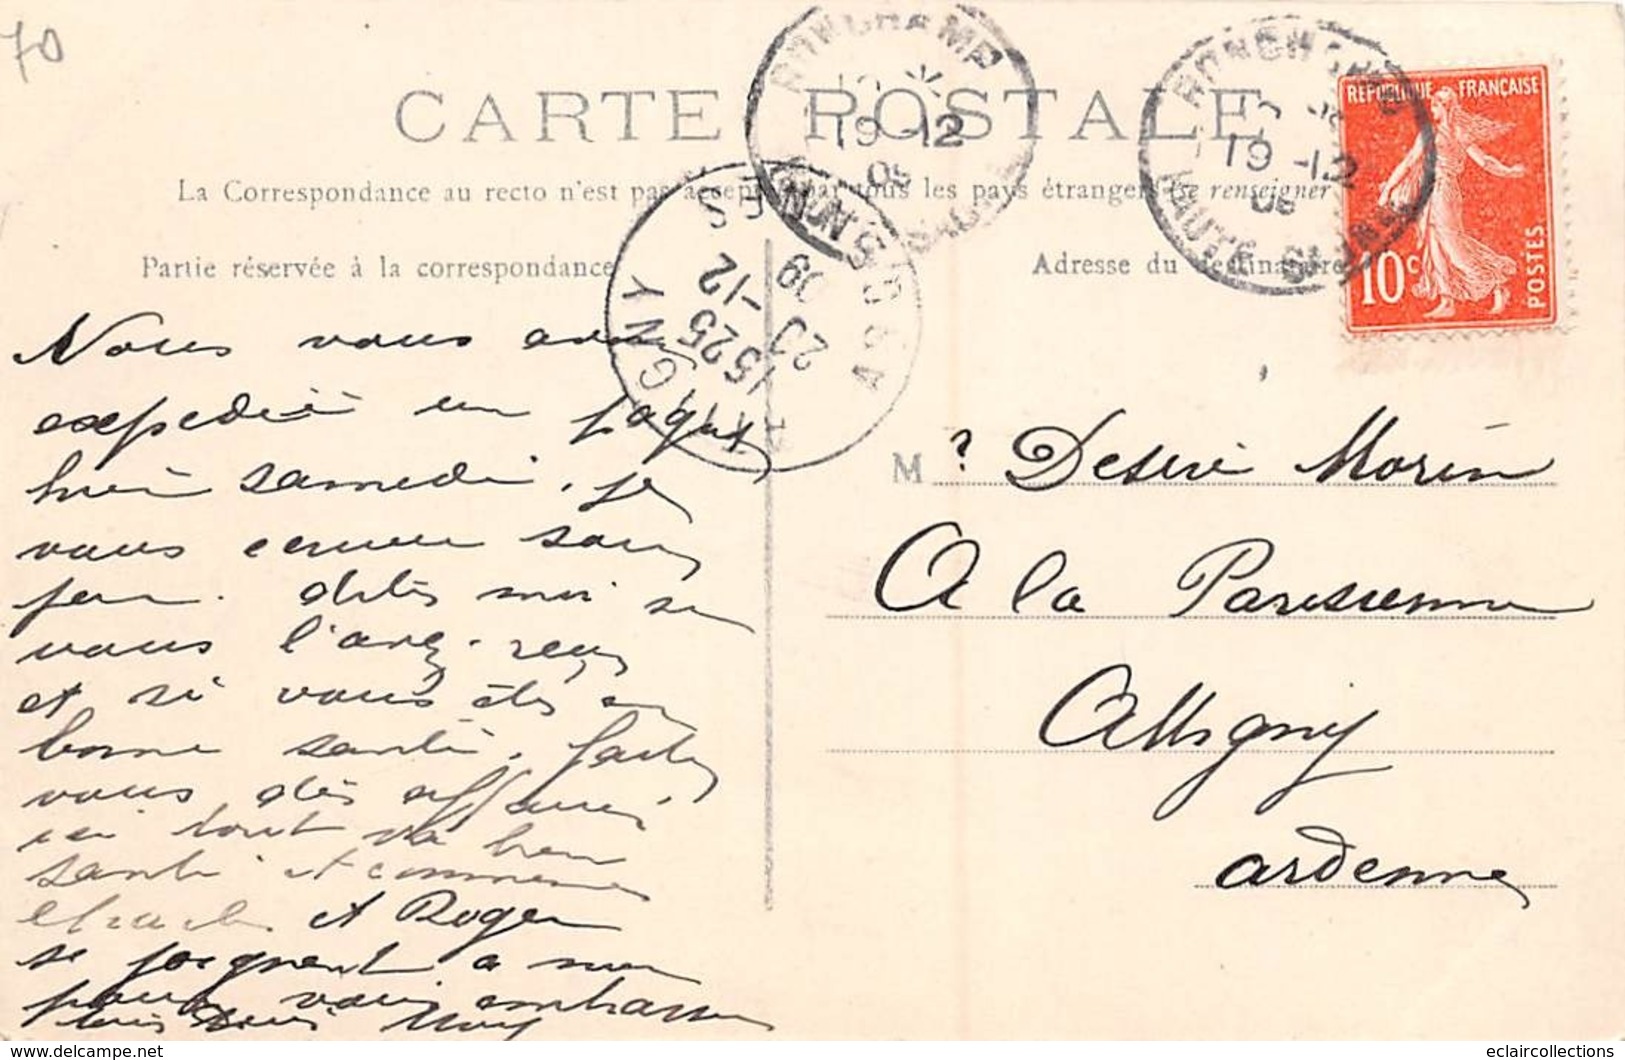 70
CARTE POSTALE
La Correspondance au recto n'est pas acceptée par tous les pays étrangers (se renseigner
Partie réservée à la correspondance
Adresse du destinataire
RONCHAMP
19 -12
RONCHAMP
19 -12
HAUTE-SAONE
ATTIGNY
15 25
20 -12
09
ARDENNES
RÉPUBLIQUE FRANÇAISE
10c
POSTES
Nous vous avons
expédié un paquet
hier samedi, je
vous
peu. dites moi si
vous l'avez reçu
et si vous êtes en
bonne santé, faites
vous des affaires
ici tout va bien
santé et commerce
et Roger
se joignent a moi
pour vous embrasser
M r Desiré Morin
A la Parisienne
Attigny
ardennes
eclaircollections
https://www.delcampe.net